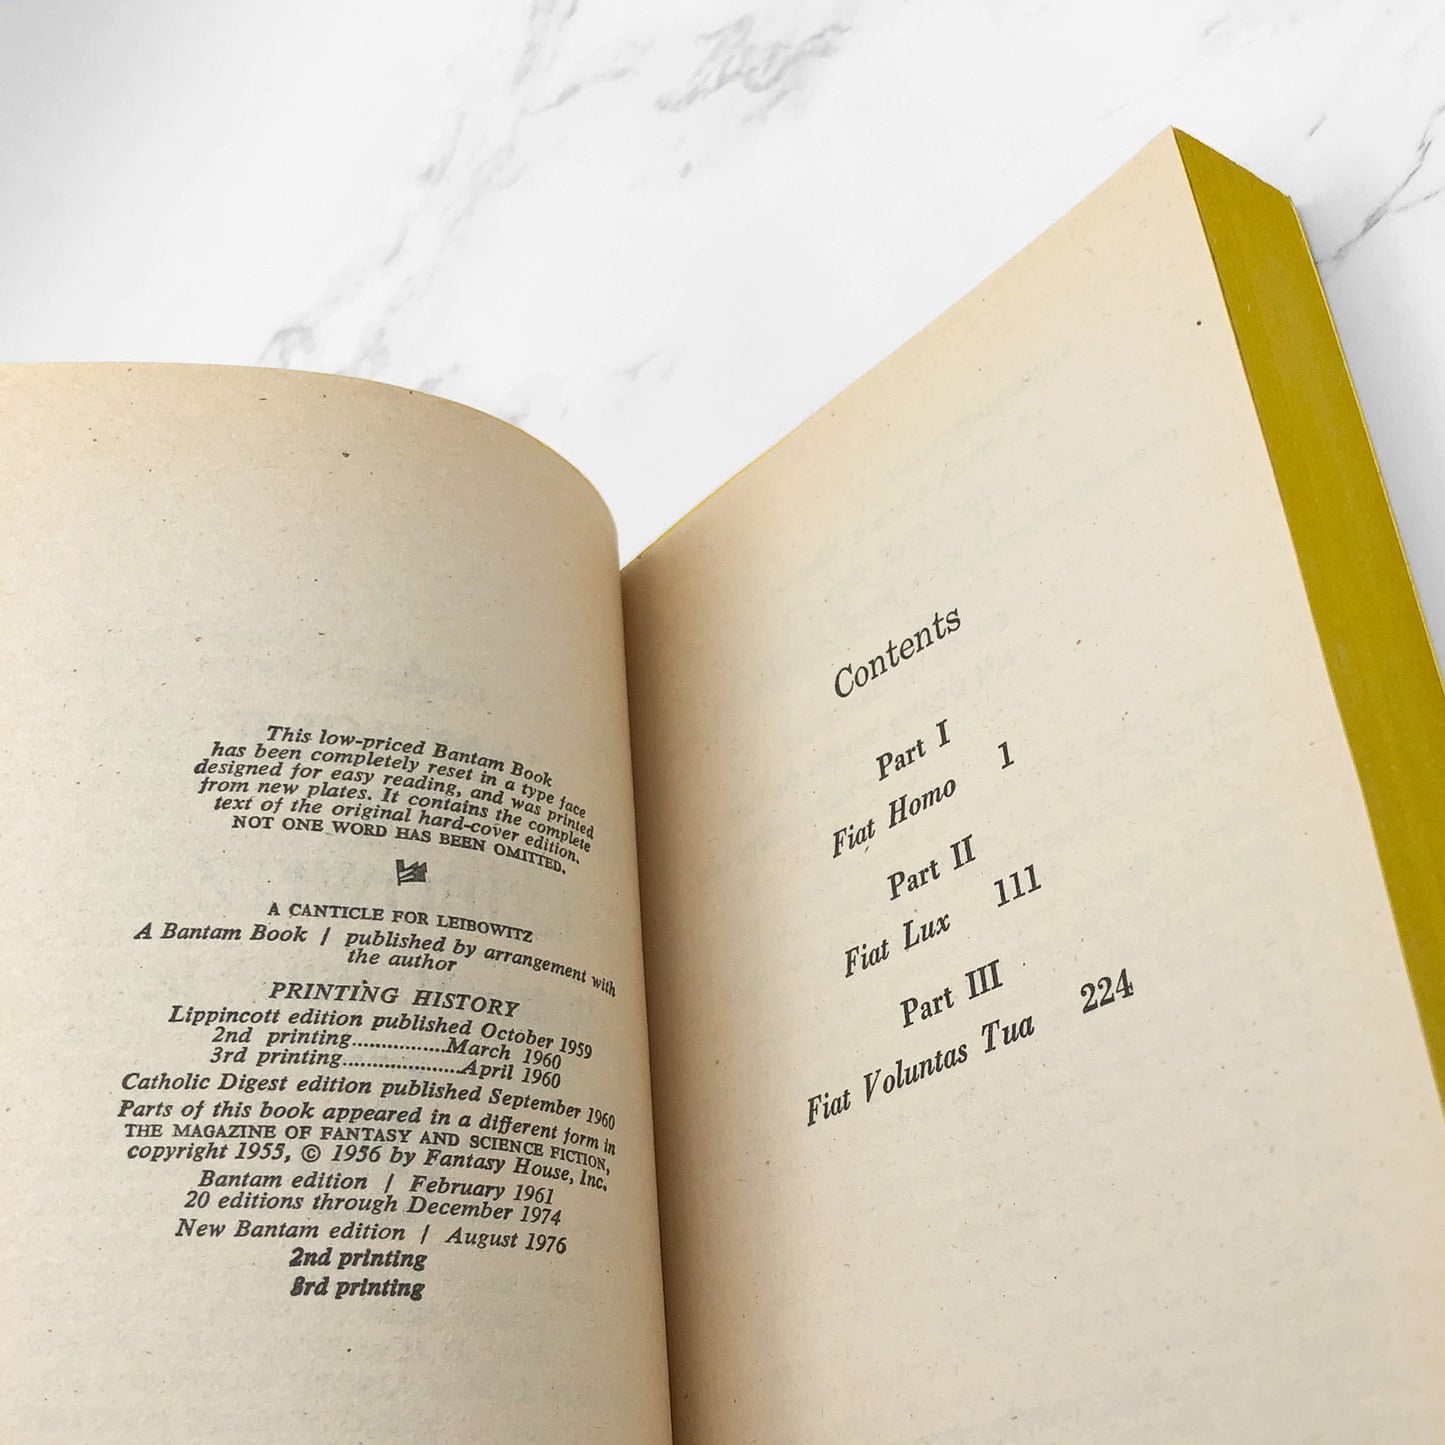 This low-priced Bantam Book
has been completely reset in a type face
designed for easy reading, and was printed
from new plates. It contains the complete
text of the original hard-cover edition.
NOT ONE WORD HAS BEEN OMITTED.
A CANTICLE FOR LEIBOWITZ
A Bantam Book / published by arrangement with
the author
PRINTING HISTORY
Lippincott edition published October 1959
2nd printing................March 1960
3rd printing....................April 1960
Catholic Digest edition published September 1960
Parts of this book appeared in a different form in
THE MAGAZINE OF FANTASY AND SCIENCE FICTION,
copyright 1955, © 1956 by Fantasy House, Inc.
Bantam edition / February 1961
20 editions through December 1974
New Bantam edition / August 1976
2nd printing
3rd printing
Contents
Part I
Fiat Homo 1
Part II
Fiat Lux 111
Part III
Fiat Voluntas Tua 224